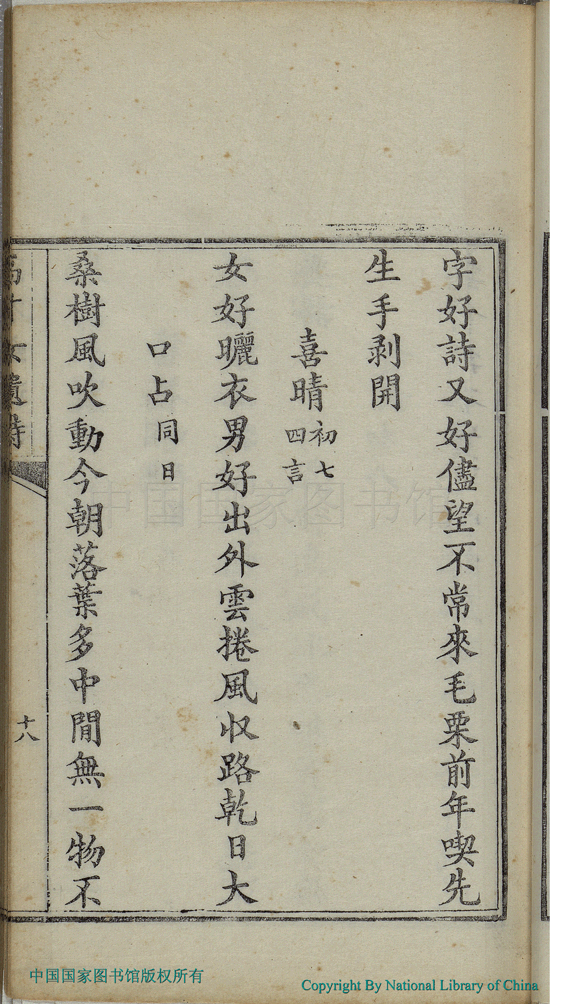 字好詩又好儘望不常來毛栗前年喫先
生手剥開
喜晴初七四言
女好曬衣男好出外雲捲風收路乾日大
口占同日
桑樹風吹動今朝落葉多中間無一物不
十八
中国国家图书馆
中国国家图书馆版权所有
Copyright By National Library of China